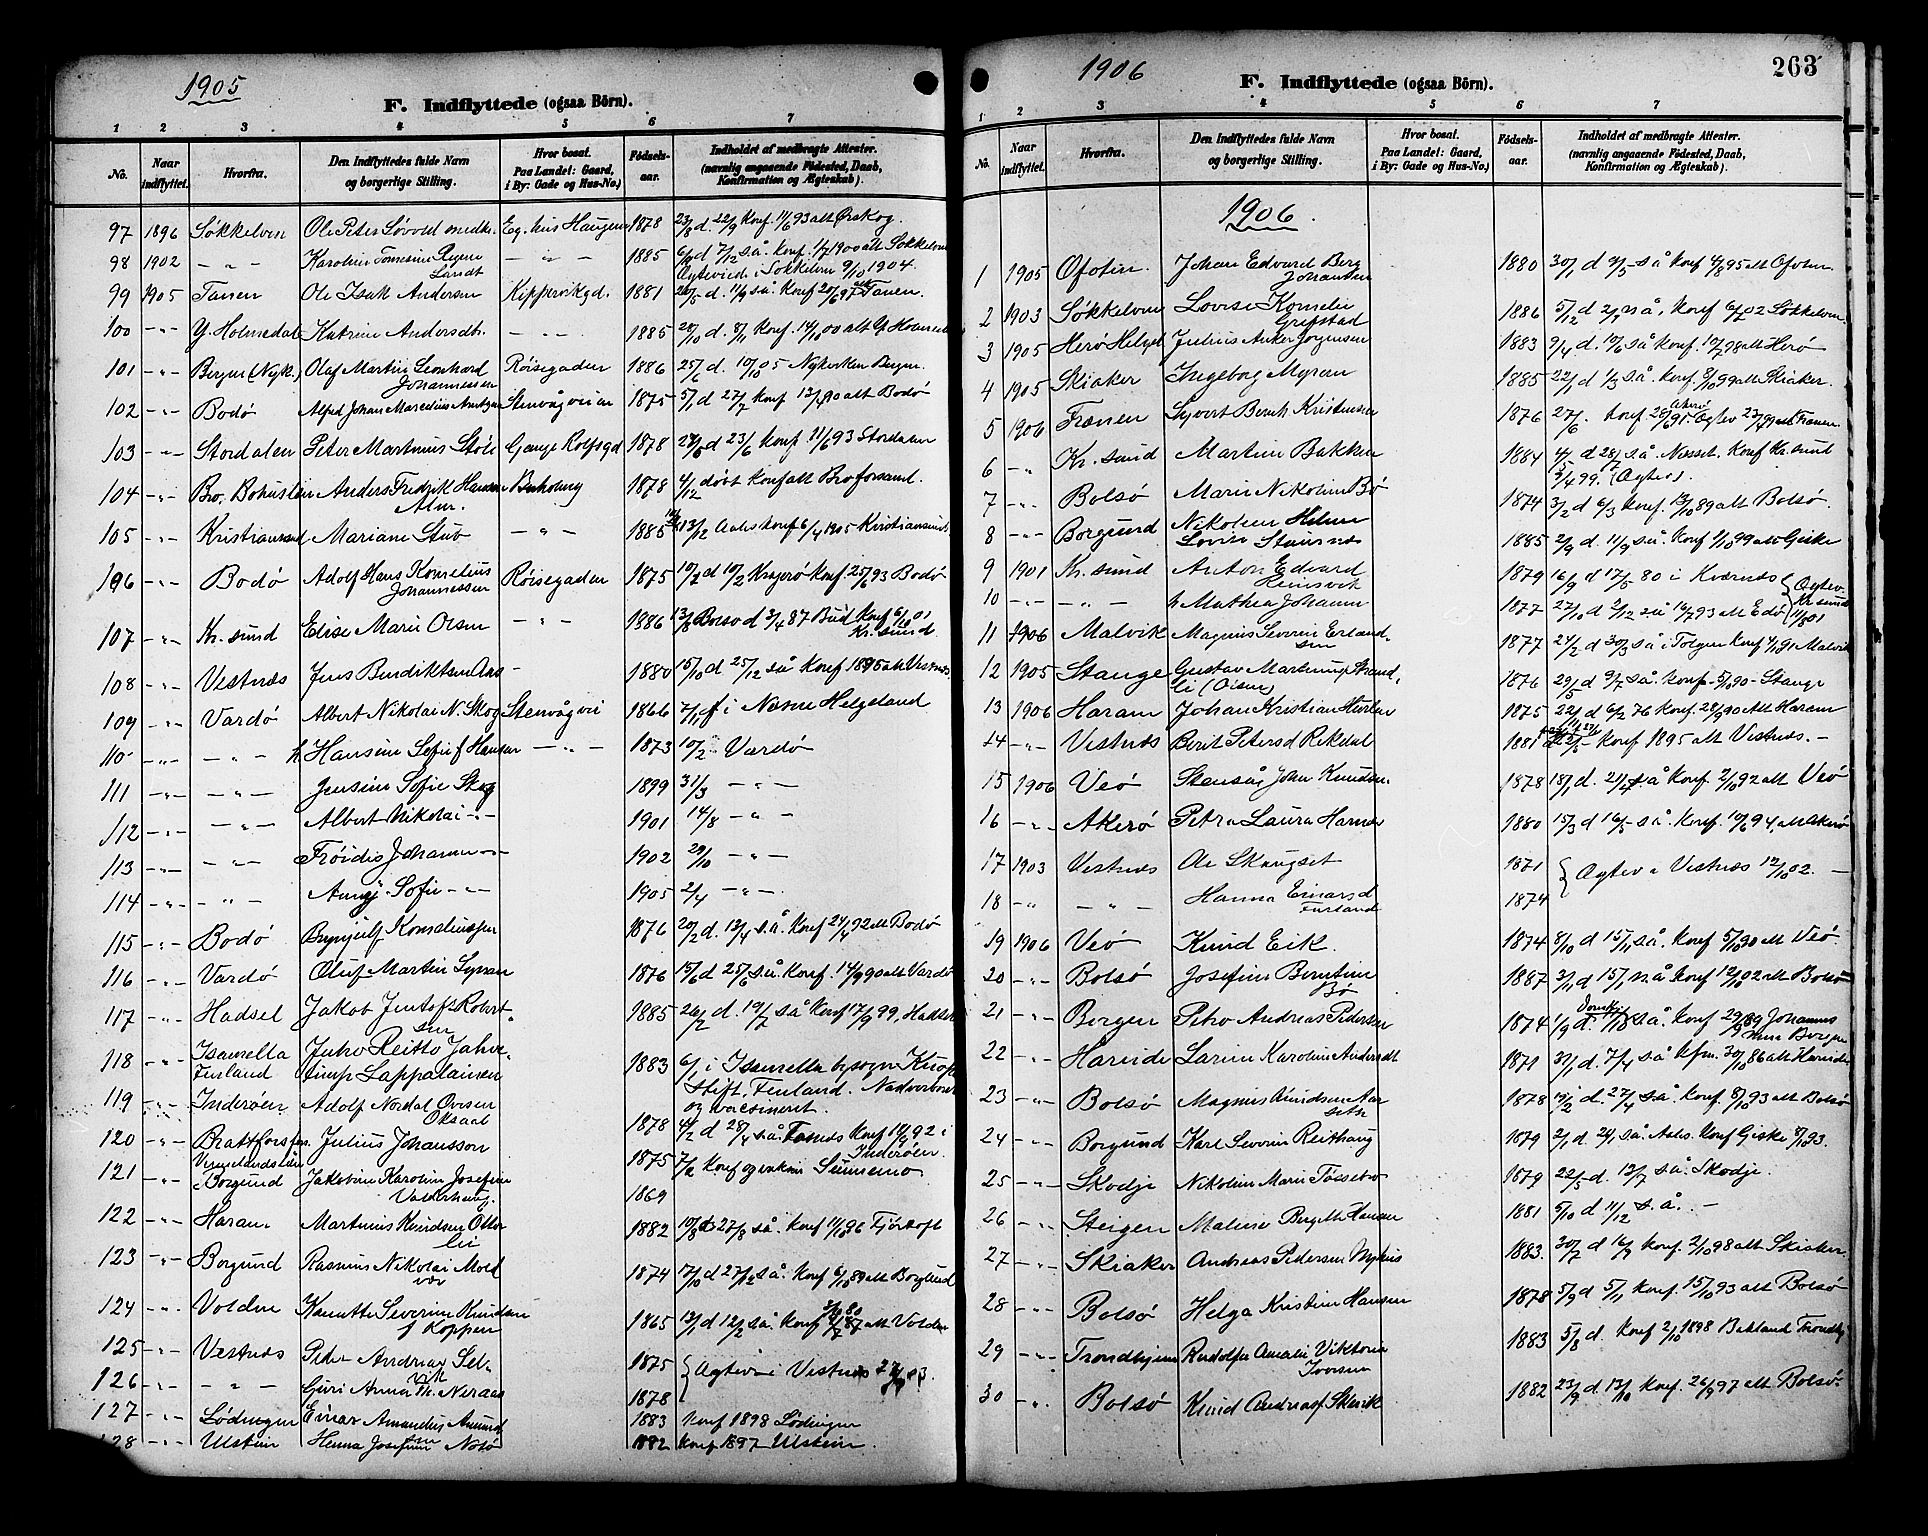 1905
F. Indflyttede (ogsaa Börn).
1 2 3 4 5 6 7
No. Naar indflyttet. Hvorfra. Den Indflyttedes fulde Navn og borgerlige Stilling. Hvor bosat. Paa Landet: Gaard, i By: Gade og Hus-No.) Fødsels-aar. Indholdet af medbragte Attester. (navnlig angaaende Fødested, Daab, Konfirmation og Ægteskab).
97 1896 Søkkelven Ole Peter Løvold 1878 23/8 d. 22/9 konf. 11/6 93 alt Ørskog.
98 1902 -"- Karoline 1885 konf. 1/7 1900 alt Søkkelven
Landt Ægteviet i Søkkelven 9/10 1904.
99 1905 Tanen Ole Isak Andersen Kippervikgd. 1881 så. konf 20/6 97 Tanen.
100 -"- Y. Holmedal Katrine Andersdt. -"- 1885 28/10 d. 8/11 konf. 14/10 00 alt Y. Holmedal
101 -"- Bergen (Nyk.) Olaf Martin Leonhard Røisegaden 1886 25/6 d. 10/10 05 Nykirken Bergen.
Johannessen
102 -"- Bodø Alfred Johan Marcelius Stenvågveien 1875 5/1 d 27/7 konf alt Bodø
103 -"- Stordalen Peter Martinus Støle Gange Rolfsgd 1878 d 23/6 konf 11/6 93 Stordalen
104 -"- Bro, Bohuslen Anders Fredrik Hansen 1878 4/12 døbt konf alt Bro forsaml.
105 -"- Kristiansund Mariane Stub -"- 1885 13/12 konf 6/4 1905 Kristiansund
106 -"- Bodø Adolf Hans Kornelius Røisegaden 1875 10/2 Kragerø konf 25/6 93 Bodø
Johannessen
107 -"- Kr. sund Elise Marie Olsen -"- 1886 13/8 Bolsø d 3/4 87 Bud konf 6/10 01
Kr. sund
108 -"- Vestnæs Jens Bendiktsen Aas - 1880 15/10 d 25/12 så konf 1895 alt Vestnæs
109 -"- Vardø Albert Nikolai N. Skog Stenvågvei 1866 7/11 f i Nesne Helgeland
110 -"- -"- h. Hansine Sofie f Hansen -"- 1873 10/2 Vardø
111 -"- -"- Jensine Sofie Skog 1899 31/3 -"-
112 -"- -"- Albert Nikolai -"- 1901 14/8 -"-
113 -"- -"- Frøidis Johanne -"- 1902 29/10 -"-
114 -"- -"- Sofie -"- 1905 2/4 -"-
115 -"- Bodø Brynjulf Korneliussen 1876 20/2 d. 13/4 så. konf 24/4 92 alt Bodø
116 -"- Vardø Oluf Martin 1876 15/6 d 25/6 så. konf. 14/9 90 alt Vardø
117 -"- Hadsel Jakob Jentoft Robert- 1885 26/2 d. 19/7 så konf 17/9 99, Hadsel
sen
118 -"- Isamella Juho Reitto Jahve- 1883 6/1 i Isamella
Finland Lappalainen Stift, Finland. Nadverberet
119 -"- Inderøen Adolf Nordal Ovesen og vaccineret.
Oksaal 1878 4/2 d 28/4 så. konf 18/9 92 i
120 -"- Brattforsf Julius Johansson Inderøen.
1875 konf og enkm Sunnemo
121 -"- Borgund Jakobine Karoline Josefine
Valderhaug. 1869
122 -"- Haram Martinus Knudsen Otter 1882 10/8 d 27/8 så. konf 11/10 96 Fjørtoft
lei
123 -"- Borgund Rasmus Nikolai Mold 1874 17/10 d 27/12 så. konf 6/10 89 alt Borgund
vær
124 -"- Volden Severine Knudsen 1865 13/1 d 12/2 så. konf alt Volden
f Koppen
125 -"- Vestnæs Peder Andreas Sel- 1875 Ægtev i Vestnæs 03.
vik
126 -"- -"- Guri Anna M. Neraas 1878
127 -"- Lødingen Einar Amandus Amund 1883 konf 1898 Lødingen
128 -"- Ulstein Hanna Josefine 1882 konf 1897 Ulstein.
1906
F. Indflyttede (ogsaa Börn).
263
1 2 3 4 5 6 7
No. Naar indflyttet. Hvorfra. Den Indflyttedes fulde Navn og borgerlige Stilling. Hvor bosat. Paa Landet: Gaard, i By: Gade og Hus-No.) Fødsels-aar. Indholdet af medbragte Attester. (navnlig angaaende Fødested, Daab, Konfirmation og Ægteskab).
1906.
1 1905 Ofoten. Johan Edvard Berg 1880 30/1 d så konf 4/8 95 alt Ofoten.
Johansen
2 1903 Søkkelven Lovise Kornelie 1886 5/12 d så, konf 6/7 02 Søkkelven.
Grepstad
3 1905 Herø Helgel Julius Anker Jørgensen 1883 9/4 d 10/6 så. konf. 10/7 98 alt Herø
4 1905 Skiaker Ingeborg Myran 1885 22/1 d 1/3 så. konf 8/10 99 alt Skiaker.
5 1906 Frænen Syvert Bernh Kristensen 1876 27/6 konf Akerø Ægtev alt Frænen
6 -"- Kr. sund Martin Bakken 1884 4/5 d 28/7 så. Nesset. konf Kr. sund
3/4 99. (Ægtev).
7 -"- Bolsø Marie Nikoline Bø 1874 3/2 d 6/3 konf. 13/10 89 alt Bolsø.
8 -"- Borgund Nikoline Helene 1885 2/9 d. 11/9 så. konf 1/10 99 alt Giske
Lovise Staurnes
9 1901 Kr. sund Anton Edvard 1879 16/9 d 17/5 80 i Kværnes Ægtev.
Reinsvik Kr. sund
10 -"- -"- h Mathea Johanne 1877 27/10 d 2/12 så 16/7 93 alt Edø 1/6 01
11 1906 Malvik Magnus Severin Erland- 1877 24/2 d 30/3 så i Tolgen konf 4/9 91 Malvik
sen
12 1905 Stange Gustav Martinius Strand- 1876 29/5 d 9/7 så. konf - 5/10 90 - Stange
li (Olsen)
13 1906 Haram Johan Kristian 1875 22/11 d 6/2 76 konf. 28/9 90 Alt Haram
14 -"- Vestnæs Berit Petersd Rekdal 1881 - konf 1895 alt Vestnæs. -
15 1906 Veø Stensås Johan Knudsen. 1878 18/1 d. 21/4 så konf 2/10 92 alt Veø
16 -"- Akerø Petra Laura Harnes 1880 15/3 d 16/5 - så. konf. 10/6 94, alt Akerø
17 1903 Vestnæs Ole Skaugset 1871 Ægtev i Vestnæs 12/10 02. -
18 -"- -"- Hanna Einarsd 1874
Furland
19 1906 Veø Knud Eik. 1874 8/10 d 15/11 så. konf 5/10 90 alt Veø.
20 -"- Bolsø Josefine Berntine 1887 3/1 d 15/1 så konf 12/10 02 alt Bolsø
Bø
21 -"- Bergen Petro Andreas Pedersen 1874 1/9 d. så. konf 29/9 89 Johannes
Bergen
22 -"- Hareide Larine Karoline Andersdt 1871 31/1 d. 7/4 så. kfm. 30/10 86 alt Hareide
23 -"- Bolsø Magnus Knudsen Aar 1878 19/2 d. 27/4 så. konf 8/10 93 alt Bolsø
seth
24 -"- Borgund Karl Severin Reithaug 1879 2/1 d. 24/1 så. Aales. konf Giske 93.
25 -"- Skodje Nikoline Marie Tøssebro 1879 22/5 d. 13/7 så. Skodje.
26 -"- Steigen Malene Bergithe Hansen 1881 5/10 d 11/12 så. -
27 -"- Skiaker Andreas Pedersen Myhus 1883. 30/7 d 16/9 konf. 2/10 98 alt Skiaker.
28 -"- Bolsø Helga Kristine Hansen 1878 5/9 d 5/11 konf. 15/10 93 alt Bolsø
29 -"- Trondhjem Rudolfa Amalie Viktoria 1883 5/8 d. konf 2/10 1898 Bakland Trondhj
Iversen
30 -"- Bolsø Knud Andreas Skevik 1882 23/9 d 13/10 konf. 26/9 97 alt Bolsø.